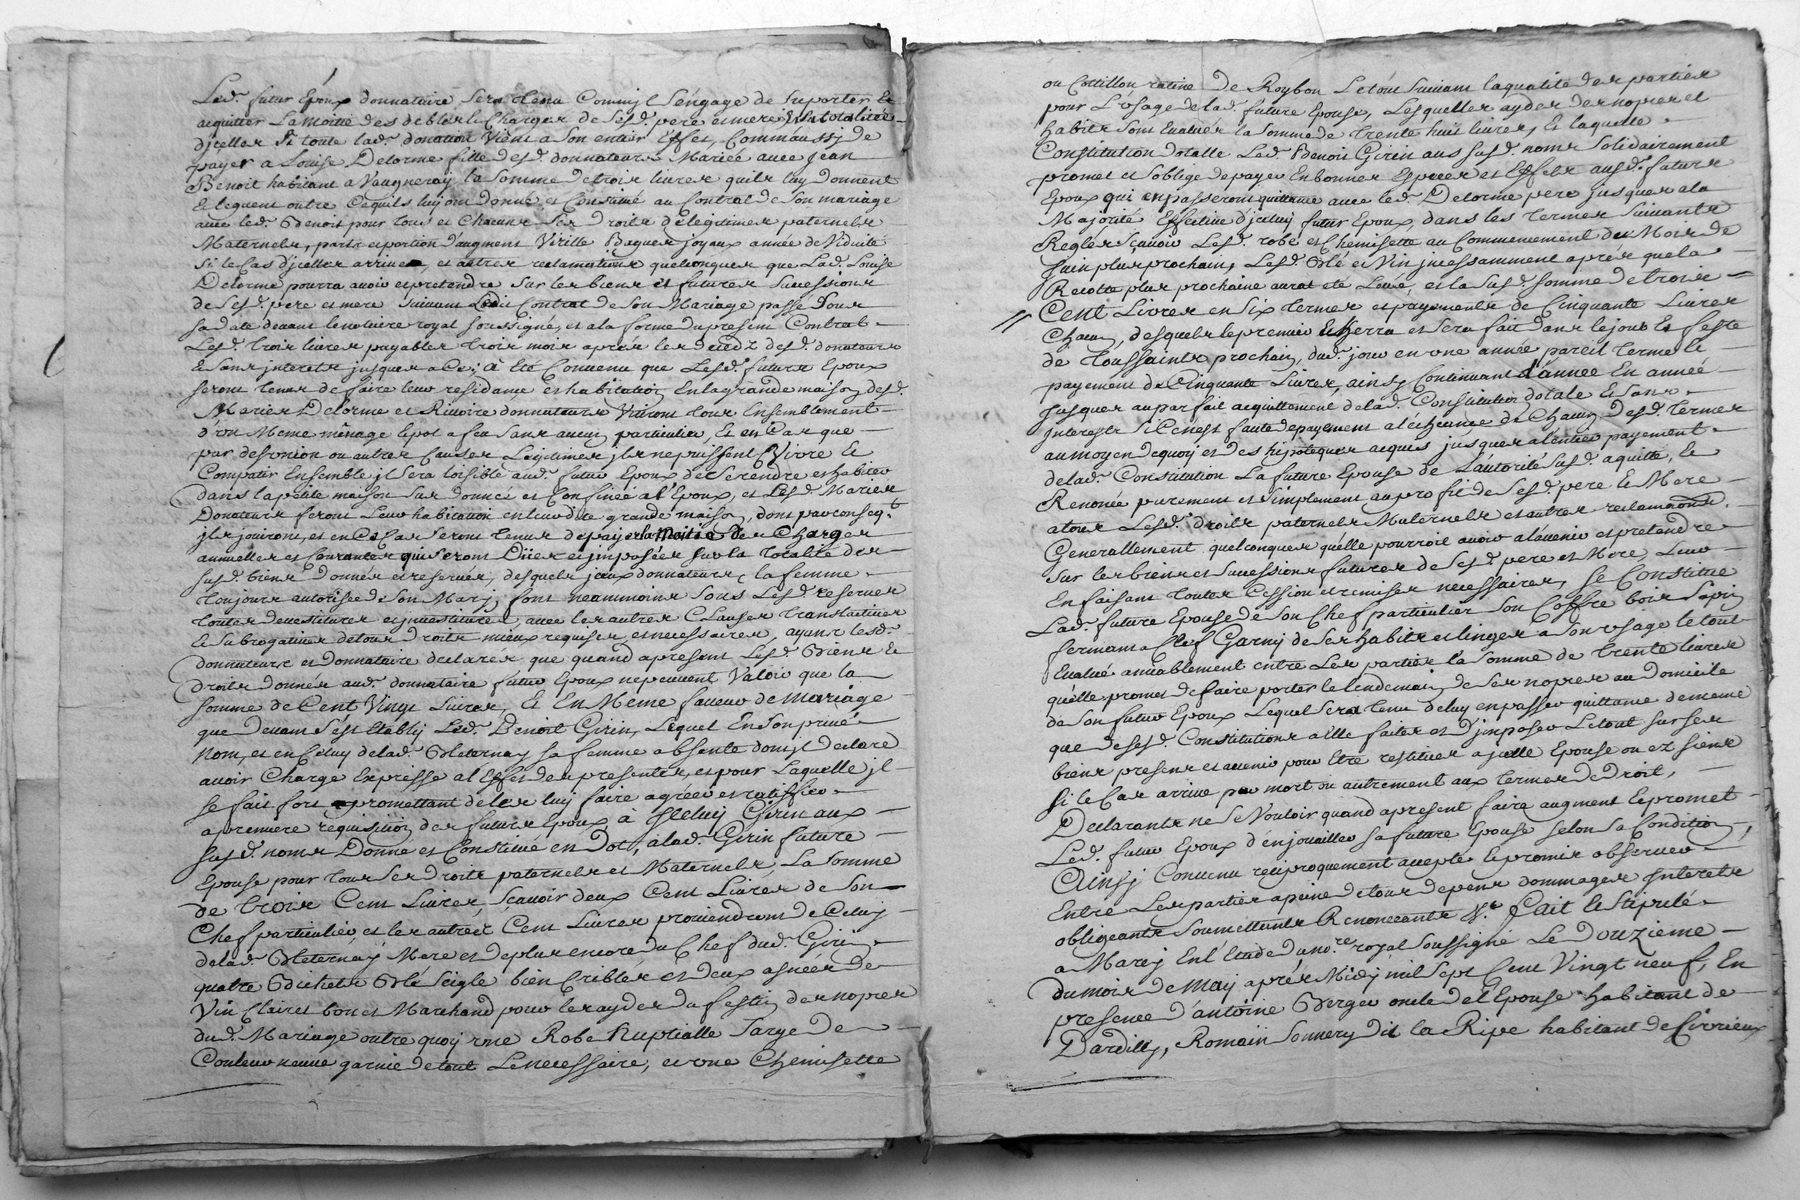 Led. futur Epoux donnataire sera tenu Comm jl s'engage de suporter Et
acquitter La moitié des debtes et Charges de sesd. pere et mere et la totalité
djcelles Si toute lad. donation Vient a son entier Effet, Comm'aussj de
payer a Louise Delorme fille desd. donnateurs Mariée avec Jean
Benoit habitant a Vaugneray la somme de trois livres quils luy donnent
& leguent outre Cequils luy ont donné et Constitué au Contrat de son mariage
avec led. Benoit pour tous et Chacuns ses droits de legitimes paternels
Maternels, parts et portion d'augment Virille Bagues joyaux année de Viduité
Si le Cas djcelles arrive, et autres reclamations quelconques que Lad. Louise
Delorme pourra avoir et pretendre sur les biens et futures successions
de sesd. pere et mere suivant Ledit Contrat de son Mariage passé sous
sa date devant le notaire royal soussigné, et a la forme du present Contrat
Lesd. trois livres payables trois mois aprés les deceds desd. donateurs
& sans interets jusques a Ce; à été Convenu que Lesd. futurs Epoux
seront tenus de faire leur residance et habitation En la grande maison desd.
Maries Delorme et Rivoire donnateurs Vivront tous Ensemblement
d'un Meme ménage a pot a feu sans aucun particulier, Et en Cas que
par desunion ou autres Causes Legitimes jls ne puissent Vivre Et
Compatir Ensemble jl sera loisible aud. futur Epoux de se rendre et habiter
dans la petite maison sus donnée et Confinée a l'Epoux, et Lesd. Mariés
Donateurs feront Leur habitation en leurdite grande maison, dont par conseqt.
jls jouiront, et en Ce Cas seront tenus de payer la moitié des Charges
annuelles et Courantes qui seront Düës et jmposées sur la totalité des
susd. biens donnés et reservés, desquels jceux donnateurs, la femme
toujours autorisée de son Marj, sont neammoins sous Lesd. reserves
toutes devestitures et jnvestitures, avec les autres Clauses translatives
& subrogatives de tous droits mieux requises, et necessaires, ayant lesd.
donnateurs et donnataire declarés que quand apresent Lesd. Biens &
droits donnés aud. donnataire futur Epoux ne peuvent Valoir que la
somme de Cent Vingt Livres, Et En Meme faveur de mariage
que devant s'est Etablj Led. Benoit Girin, Lequel En son privé
Nom, et en Celuy de lad. Bleternay sa femme absente dont jl declare
avoir Charge Expresse a l'Effet des presentes, et pour Laquelle jl
se fait fort promettant de les luy faire agréer et ratiffier
a premiere requisition des futurs Epoux à Jceluy Girin aux
susd. noms Donne et Constitué en Dot, a lad. Girin future
Epouse pour tous ses Droits paternels et Maternels, La somme
de trois Cent Livres, sçavoir deux Cent Livres de son
Chef particulier et les autres Cent Livres proviendront de Celuy
de lad. Bleternay Mere et deplus encore du Chef dud. Girin
quatre Bichets Blé Seigle bien Criblés et deux asnées de
Vin Clairet bon et Marchand pour les ayder du festin des nopces
dud. Mariage outre quoy une Robe Nuptialle sarge de
Couleur neuve garnie de tout Le necessaire, et une Chemisette
ou Cottillon ratine de Roybon Le tout suivant la qualité des parties
pour L'usage de lad. future Epouse, Lesquelles ayder des nopces et
habits sont Evalués la somme de trente huit livres, Et laquelle
Constitution dotalle Led. Benoit Girin aux susd. noms Solidairement
promet et s'oblige de payer En bonnes Especes et Effets ausd. futurs
Epoux qui en passeront quittance avec led. Delorme pere jusques a la
Majorité Effective d'jceluy futur Epoux, dans les termes suivants
Reglés sçavoir Lesd. robe et Chemisette au Commencement du Mois de
Juin plus prochain, Lesd. Blé et Vin jncessamment aprés que la
Recolte plus prochaine aura été Levée, et la susd. somme de trois
Cent Livres en six termes et payements de Cinquante Livres
Chacun, desquels le premier Echerra et sera fait dans le jour & feste
de Toussaints prochain, dud. jour en une année pareil terme et
payement de Cinquante Livres, ainsy Continuant d'année En année
Jusques au parfait acquittement de lad. Constitution dotale & sans
Interests Si Ce n'est faute de payement a l'écheance de Chacun desd. termes
au moyen de quoy et des hipoteques acquis jusques a l'entier payement
de lad. Constitution La future Epouse de L'autorité susd. aquitte, et
Renonce purement et simplement au profit de sesd. pere & Mere
a tous Lesd. droits paternels Maternels et autres reclamations
Generallement quelconques qu'elle pourroit avoir a l'avenir et pretendre
sur les biens et successions futures de sesd. pere et Mere, Leur
En faisant toutes Cession et remises necessaires, se Constitue
Lad. future Epouse de son Chef particulier son Coffre bois Sapin
fermant a Clef Garny de ses habits et linges a son usage le tout
Evalué amiablement entre Les parties la somme de trente livres
qu'elle promet de faire porter le lendemain de ses nopces au Domicile
de son futur Epoux Lequel sera tenu de luy en passer quittance de meme
que desd. Constitutions a Elle faites et d'jmposer Le tout sur ses
biens presens et avenir pour Etre restitués a jcelle Epouse ou ez siens
Si le Cas arrive par mort ou autrement aux termes de Droit,
Declarants ne se Vouloir quand apresent faire augment Et promet
Led. futur Epoux d'enjouailler sa future Epouse selon sa Condition,
Ainsj Convenu reciproquement accepté Et promis observer
Entre Les parties a peine de tous depens dommages Interets
obligeants soumettants Renonceants &c. Fait & Stipulé
a Marcy En l'étude du nore. royal soussigné Le Douzieme
du mois de May aprés Midy mil sept Cent Vingt neuf, En
presence d'antoine Berger oncle de l'Epouse habitant de
Dardilly, Romain Sonnery dit la Ripe habitant de Civrieux